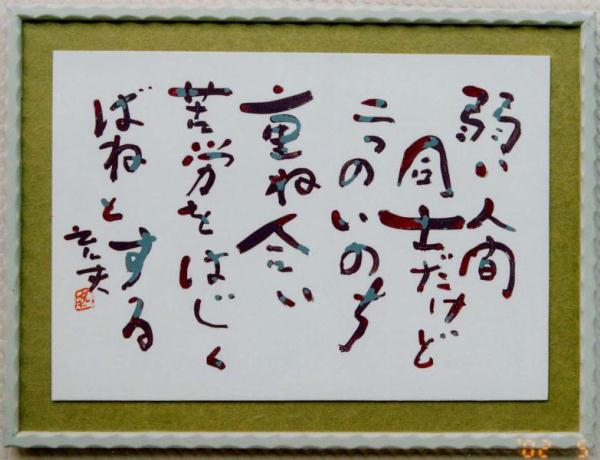 弱い人間
同士だけど
二つのいのち
重ね合い
苦労をはじく
ばねとする
'02 5